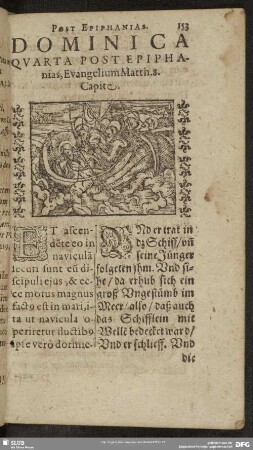 POST EPIPHANIAS. 153
DOMINICA
QVARTA POST EPIPHA-
nias, Evangelium Matth. 8.
Capite.
ET ascen-
dēte eo in
naviculā
secuti sunt eū di-
scipuli ejus, & ec-
ce motus magnus
factꝰ est in mari, i-
ta ut navicula o-
periretur fluctibꝰ
ipse verò dormie-
VNd er trat in
dz Schiff / uñ
seine Jünger
folgeten jhm. Und si-
he / da erhub sich ein
groß Ungestümb im
Meer / also / daß auch
das Schifflein mit
Welle bedecket ward /
Und er schlieff. Und
die
SLUB
DFG